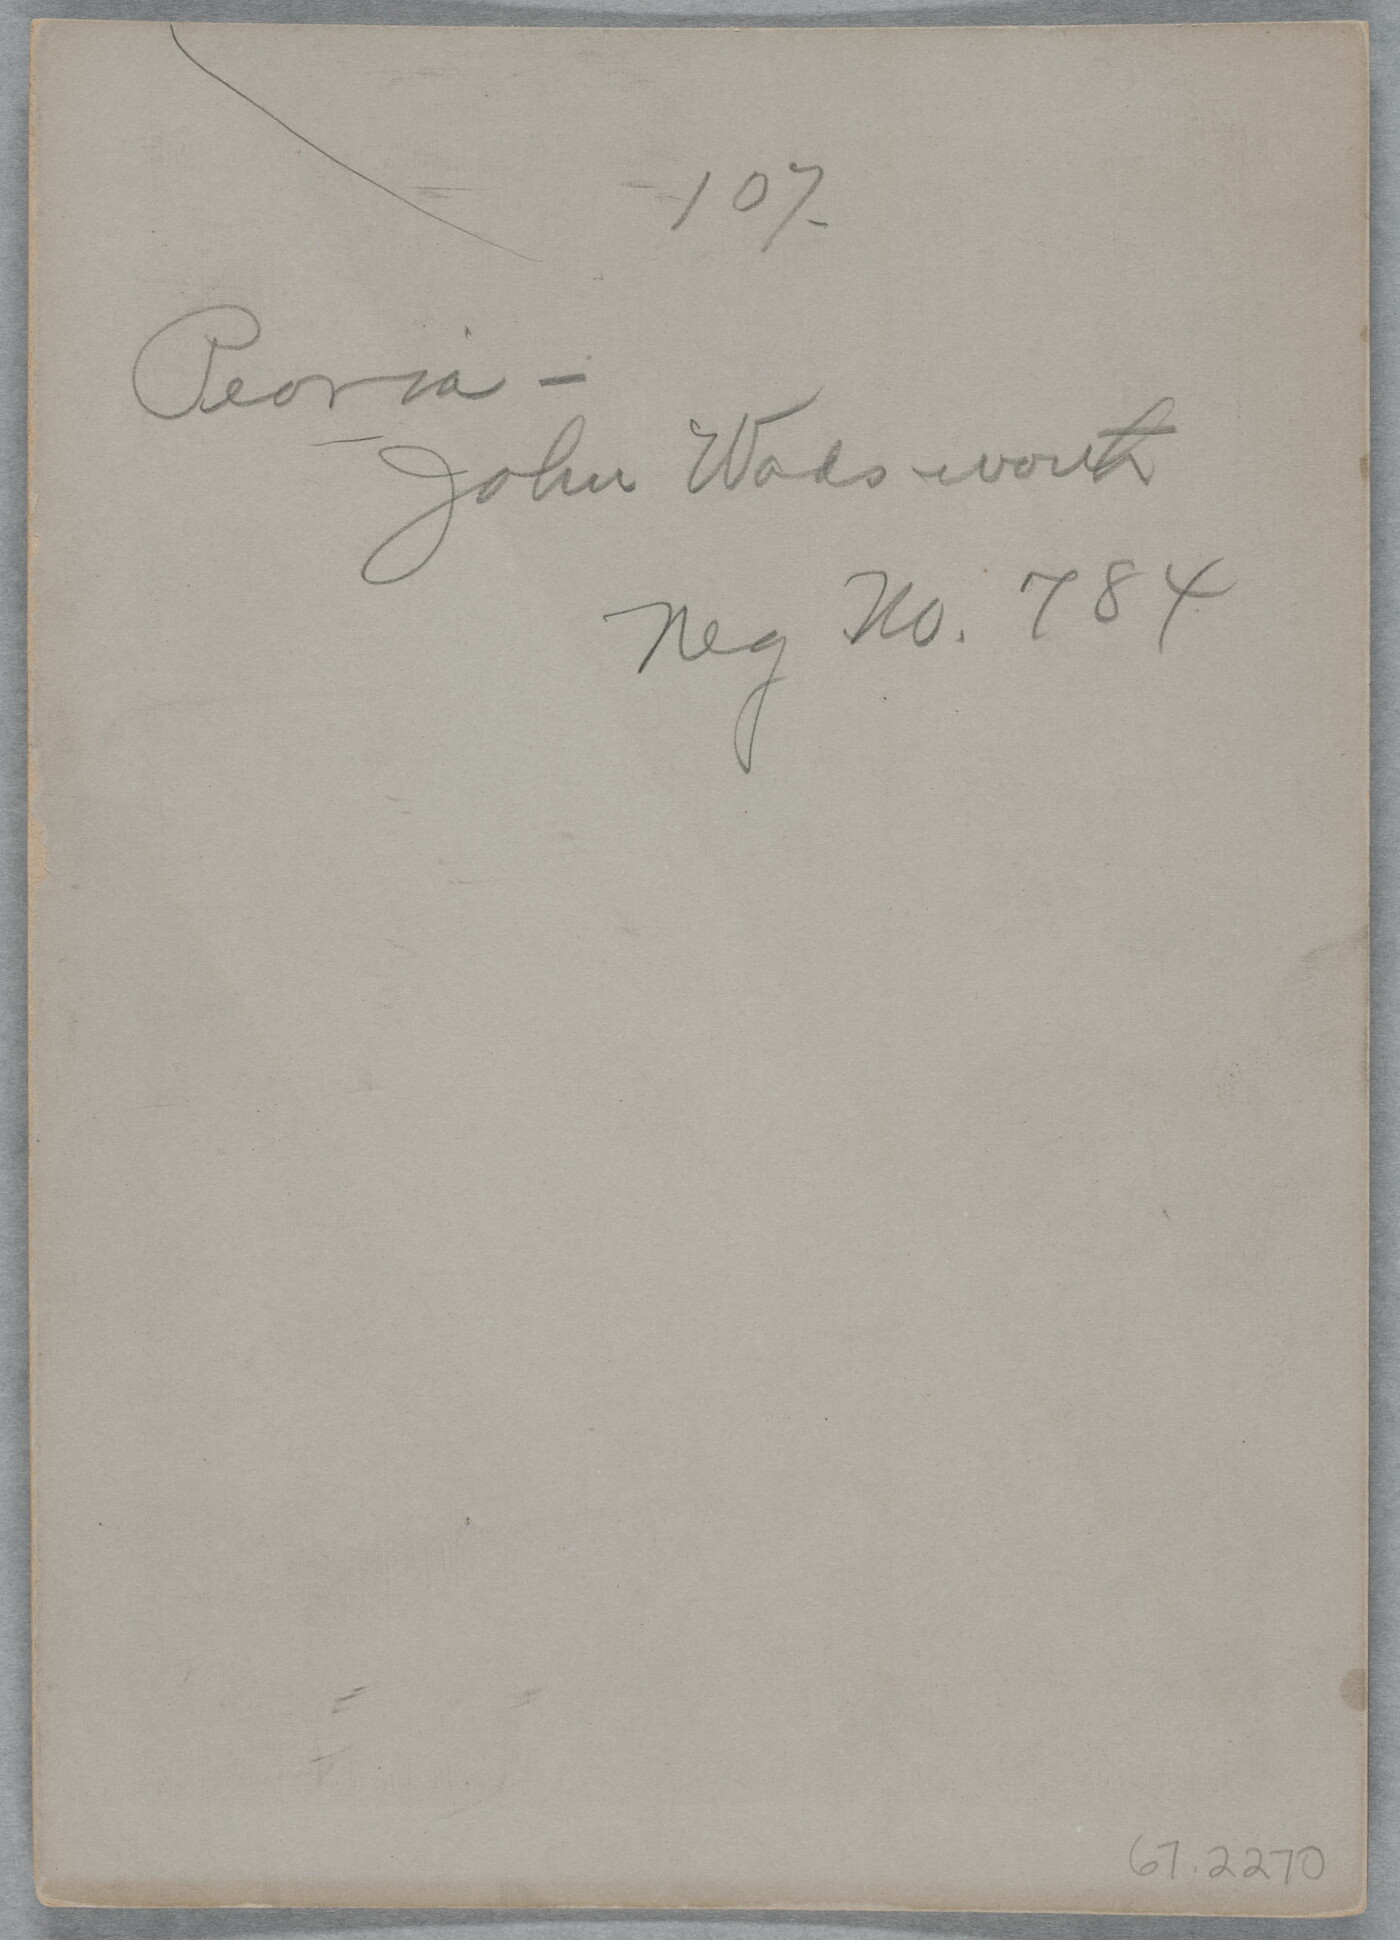 107.
Peoria -
John Wadsworth
Neg No. 784
67.2270